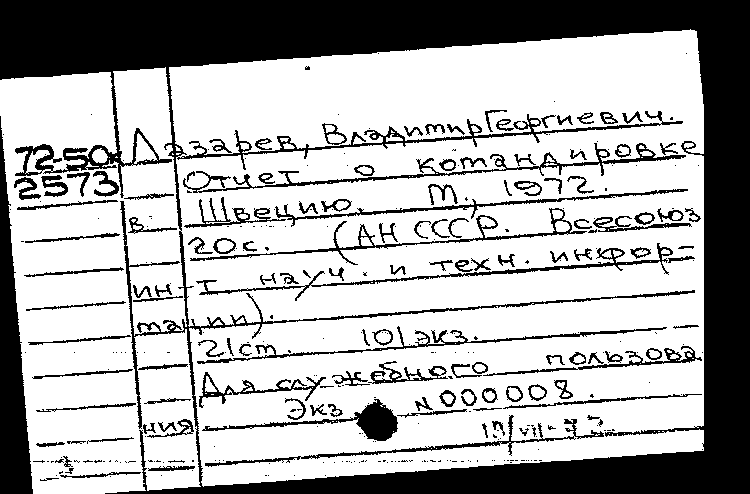 72-50к Лазарев, Владимир Георгиевич.
2573 Отчет о командировке
в Швецию. М., 1972.
20с. (АН СССР. Всесоюз
ин-т науч. и техн. инфор-
мации).
21см. 101 экз.
Для служебного пользова
ния Экз. N 000008.